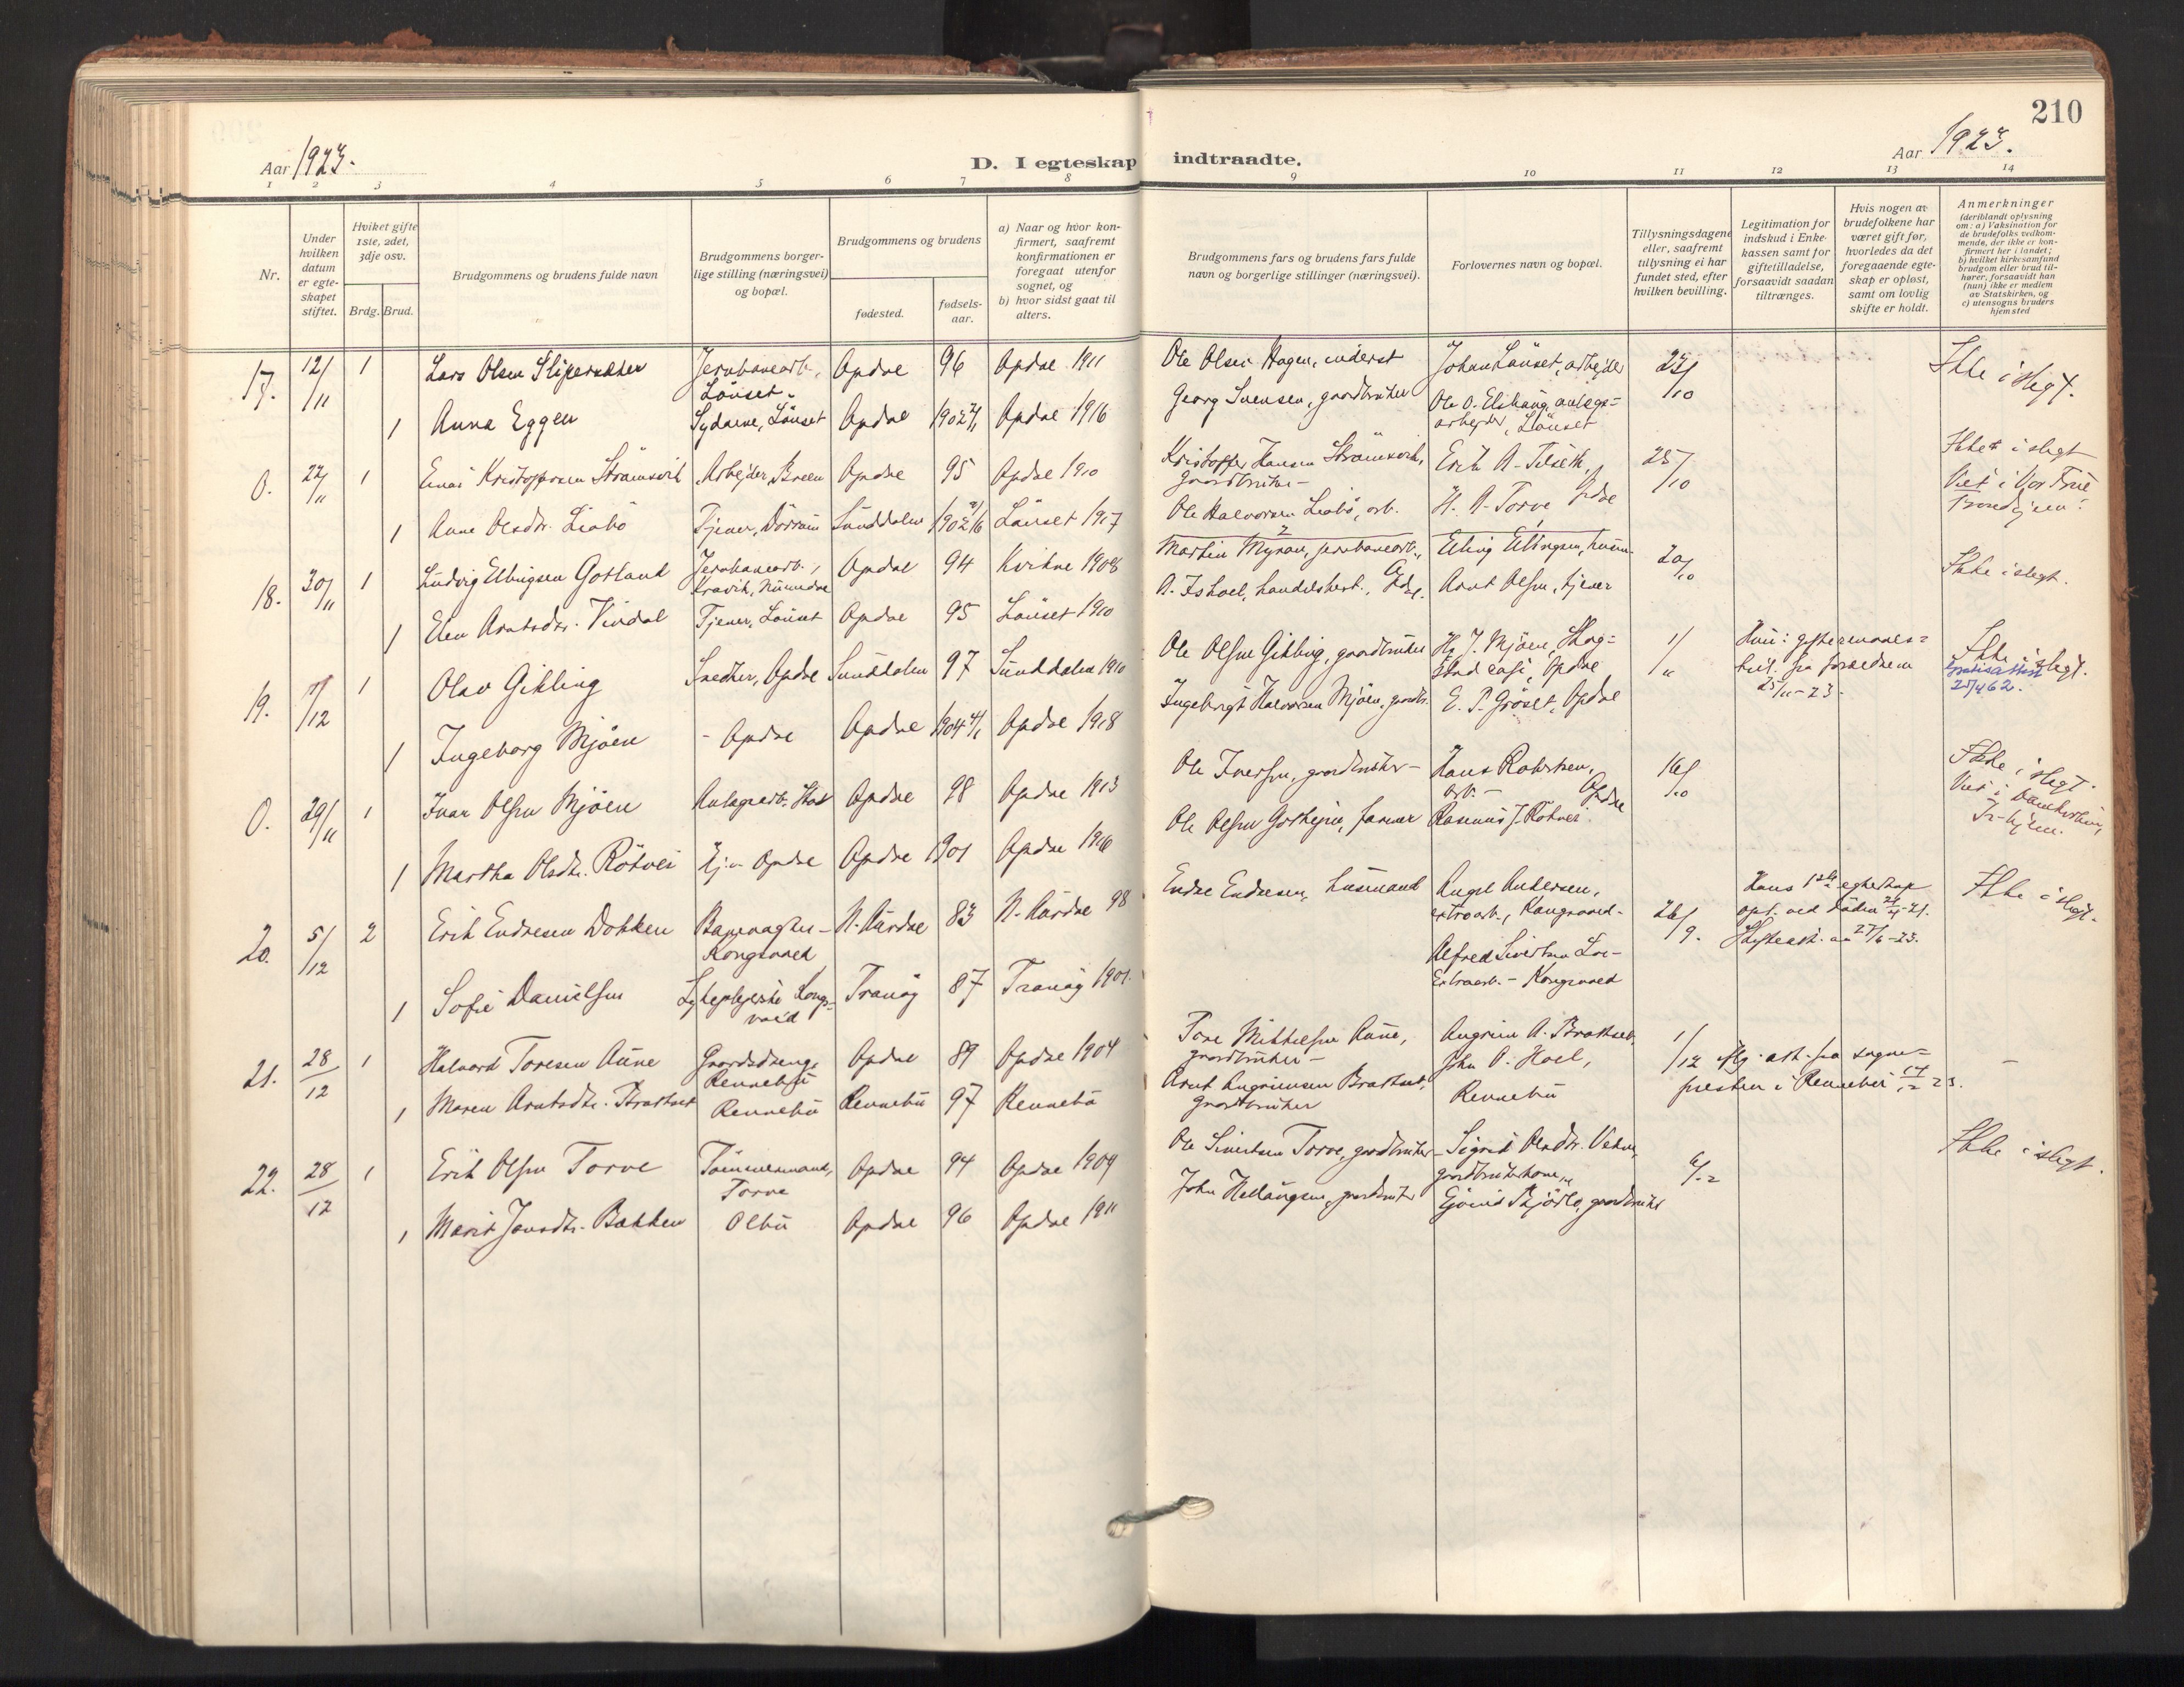 210
Aar 1923.
D. I egteskap indtraadte.
Aar 1923.
1 2 3 4 5 6 7 8 9 10 11 12 13 14
Nr.
Under hvilken datum er egteskapet stiftet.
Hviket gifte 1ste, 2det, 3dje osv.
Brdg. Brud.
Brudgommens og brudens fulde navn
Brudgommens borgerlige stilling (næringsvei) og bopæl.
Brudgommens og brudens
fødested.
fødselsaar.
a) Naar og hvor konfirmert, saafremt konfirmationen er foregaat utenfor sognet, og
b) hvor sidst gaat til alters.
Brudgommens fars og brudens fars fulde navn og borgerlige stillinger (næringsvei).
Forlovernes navn og bopæl.
Tillysningsdagene eller, saafremt tillysning ei har fundet sted, efter hvilken bevilling.
Legitimation for indskud i Enkekassen samt for giftetilladelse, forsaavidt saadan tiltrænges.
Hvis nogen av brudefolkene har været gift før, hvorledes da det foregaaende egteskap er opløst, samt om lovlig skifte er holdt.
Anmerkninger
(deriblandt oplysning om: a) Vaksination for de brudefolks vedkommende, der ikke er konfirmert her i landet; b) hvilket kirkesamfund brudgom eller brud tilhører, forsaavidt han (hun) ikke er medlem av Statskirken, og c) utensogns bruders hjemsted
17. 12/11 1 Lars Olsen Slipersæter Jernbanearb., Lönset. Opdae 96 Opdae 1911 Ole Olsen Hagen, inderst Johan Lönset, arbejder /10 Ikke i slegt.
1 Anna Eggen Sydame, Lönset Opdae 1902 Opdae 1916 Georg Svensen, gaardbruker Ole O. anlegsarbejder, Lönset
0. 22/11 1 Einar Kristoffersen Strömsvik Arbejder, Opdae 95 Opdae 1910 Kristoffer Hansen Strömsvik, gaardbruker - Erik A. 25/10 Ikke i slegt
1 Ane Olsdtr. Liabö Tjener, Sunddalen 1902 Lönset 1917 Ole Halvorsen Liabö, arb. H. A. Torve, Opdae Viet i Vor Frue Trondhjem.
18. 30/11 1 Ludvig Ellingsen Gotland Jernbanearb., Opdae 94 Kvikne 1908 Martin Myran, jernbanearb., 20/10 Ikke i slegt.
1 Elen Arntsdtr. Vindal Tjener, Lönset Opdae 95 Lönset 1910 A. Ishoel, handelsbest., Opdal. Arnt Olsen, tjener
19. 7/12 1 Olav Gikling Snedker, Opdae Sunddalen 97 Sunddalen 1910 Ole Olsen Gikling, gaardbruker H. J. Mjöen, Skogstad café, Opdae 1/11 25/11-23. Ikke i slegt.
25/4 62.
1 Ingeborg Mjöen - Opdae Opdae 1904 4/1 Opdae 1918 Ingebrigt Halvorsen Mjöen, gaardbr. E. P. Gröset, Opdae
0. 29/11 1 Ivar Olsen Mjöen Anlegsarb. Opdae 98 Opdae 1913 Ole Iversen, gaardbruker - Hans Robertsen, arb. - Opdae 16/10 Ikke i slegt.
Viet i Domkirken, Tr-hjem.
1 Martha Olsdtr. Rötvei Tj. - Opdae Opdae 1901 Opdae 1916 Ole Olsen farmer Rasmus J. Rötvei.
20. 5/12 2 Erik Endresen Dokken Banevagter - Kongsvold N. Aurdae 83 N. Aurdae 98 Endre Endresen, husmand August Andersen, extraarb., Kongsvold - 26/9. Hans 1ste egteskap opl. ved döden 21. Skifteatt. av 27/6-23. Ikke i slegt.
1 Sofie Danielsen Sykepleierske Kongsvold Tranöy 87 Tranöy 1901. Alfred Sivertsen Extraarb. - Kongsvold
21. 28/12 1 Halvard Toresen Aune Gaardsdreng, Rennebu Opdae 89 Opdae 1904 Tore Mikkelsen Aune, gaardbruker - Angrim A. Brattset, 1/12 att. fra sognepresten i Rennebu 23. -
1 Maren Arntsdtr. Brattset Rennebu Rennebu 97 Rennebu Arnt Angrimsen Brattset, gaardbruker John O. Hoel, Rennebu
22. 28/12 1 Erik Olsen Torve Tömmermand, Torve Opdae 94 Opdae 1909 Ole Sivertsen Torve, gaardbruker - Sigrid Olsdtr. gaardbrukerkone Ikke i slegt.
1 Marit Jonsdtr. Bakken Olbu Opdae 96 Opdae 1911 John gaardbruker gaardbruker